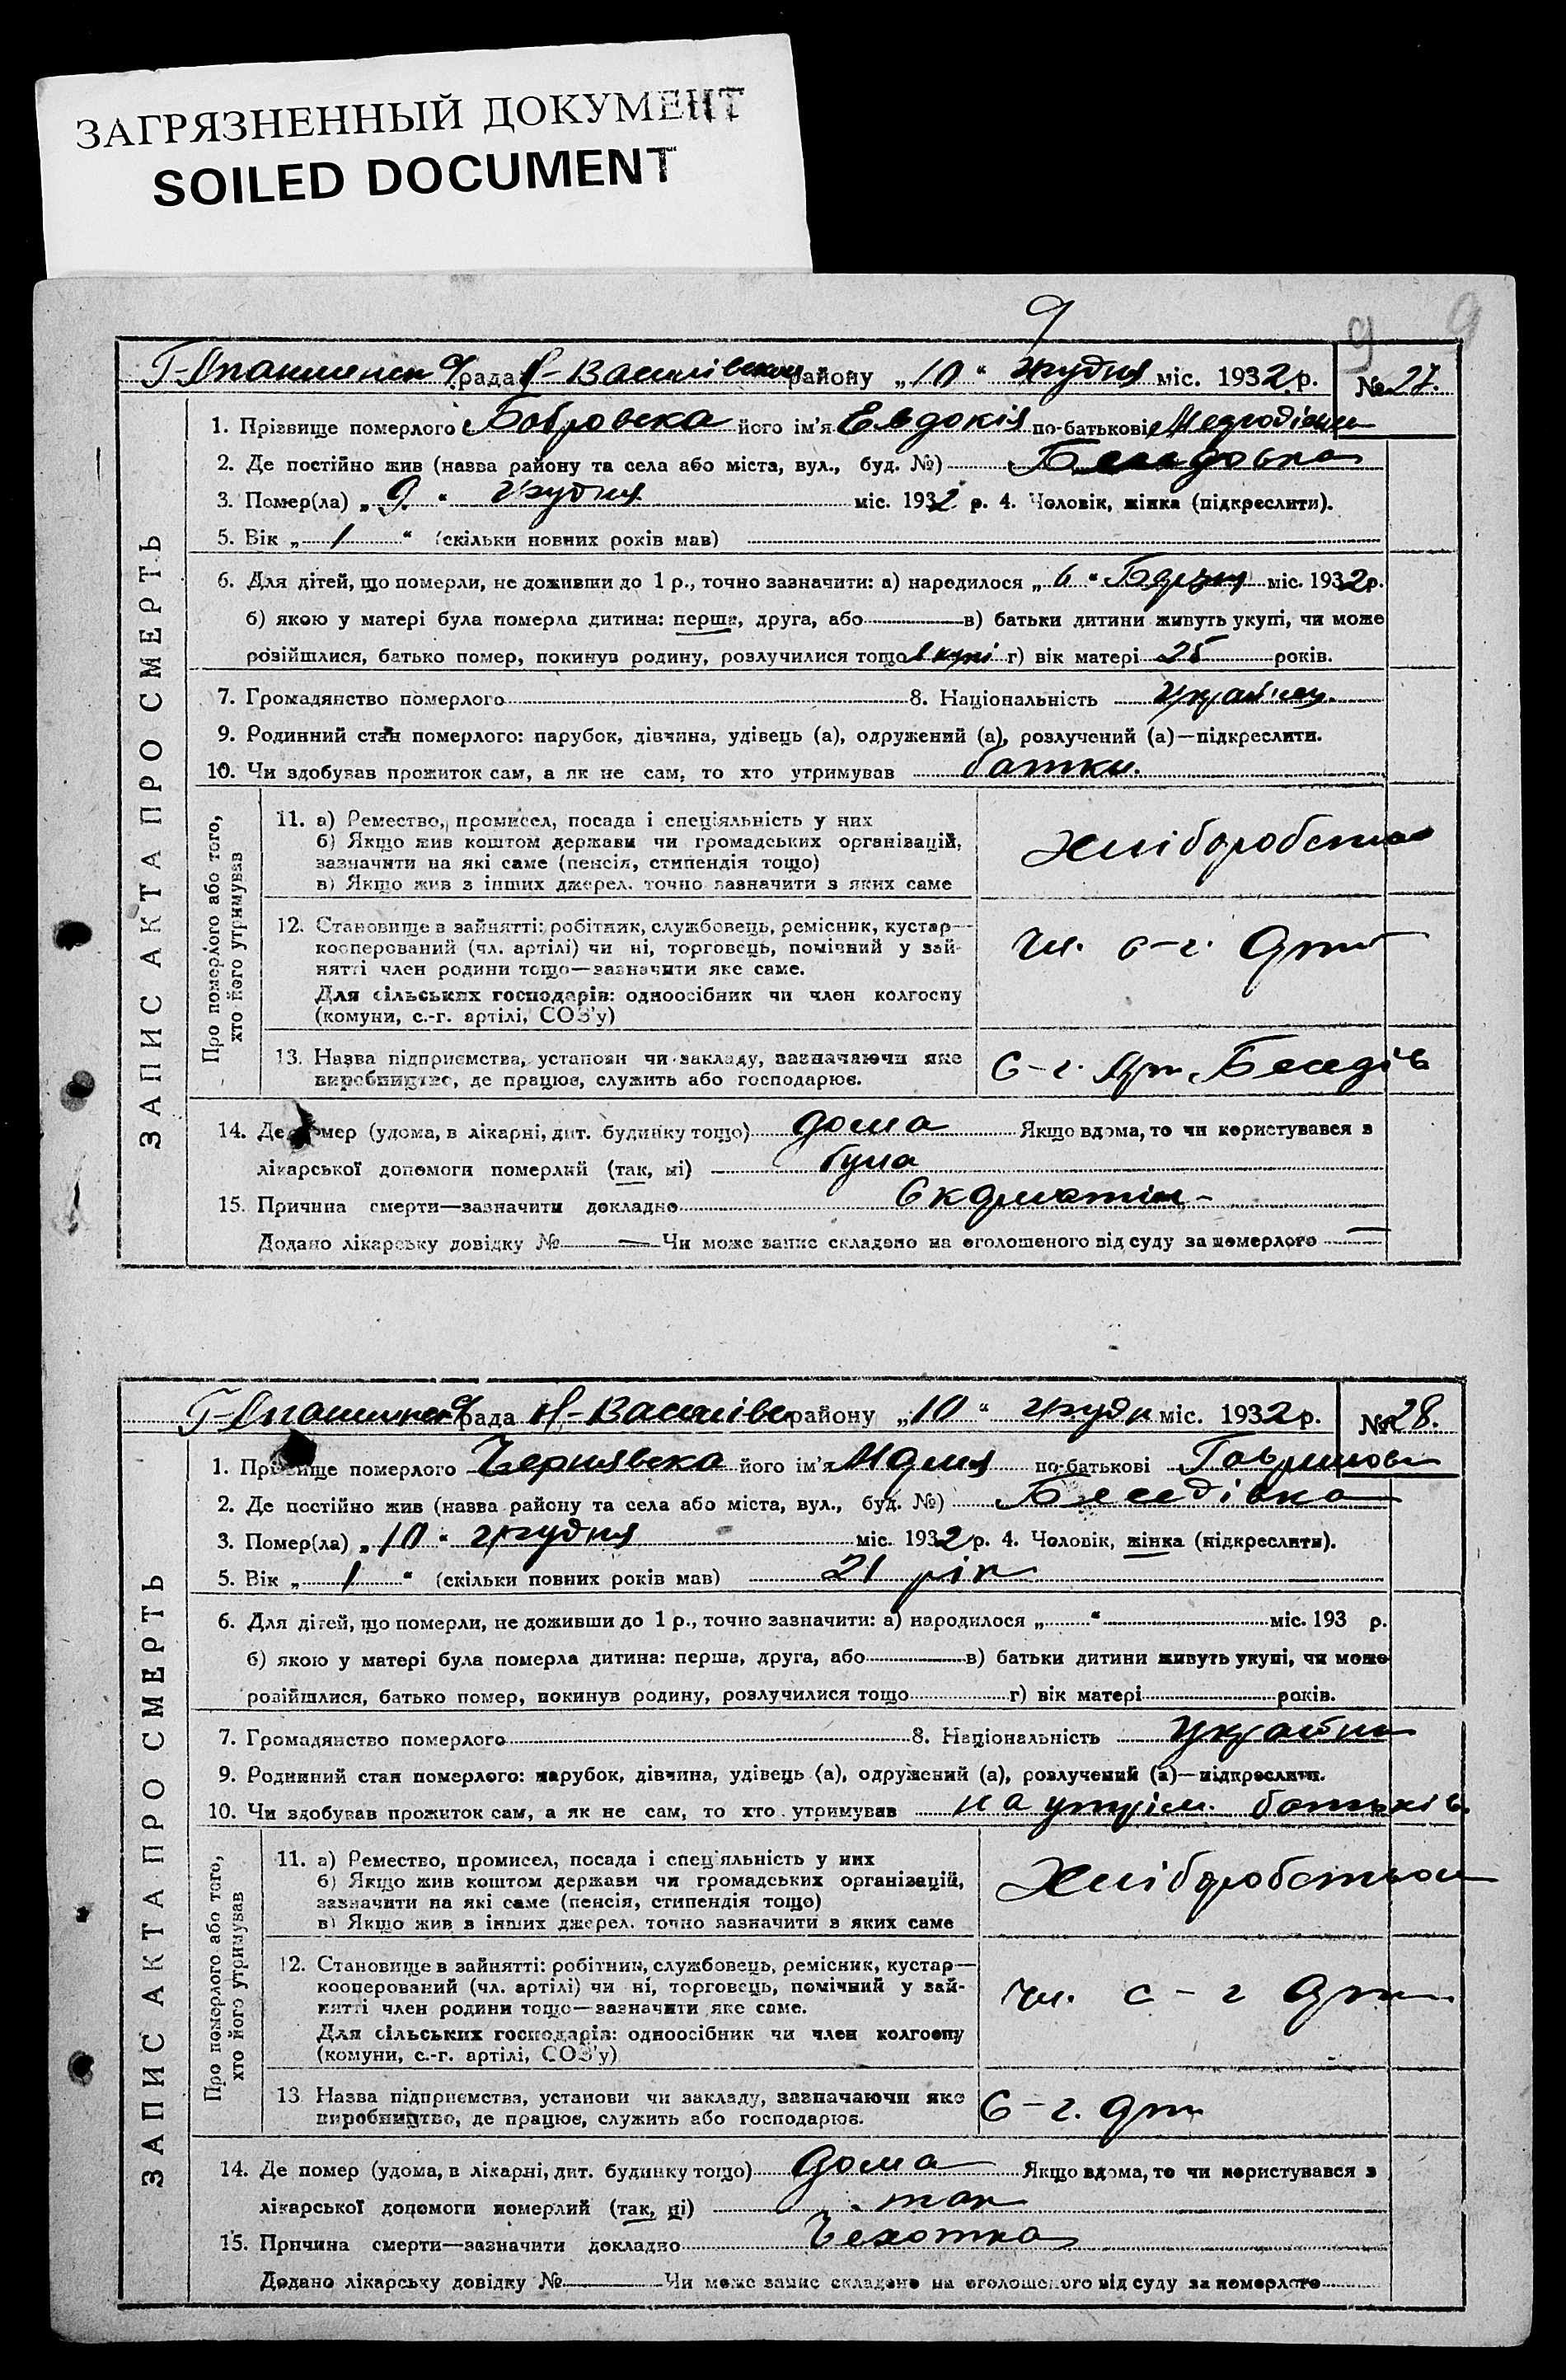 ЗАГРЯЗНЕННЫЙ ДОКУМЕНТ
SOILED DOCUMENT
9
9 9
рада району „10“ грудня міс. 1932 р. № 27.
1. Прізвище померлого Бобровска його ім'я Евдокія по-батькові
2. Де постійно жив (назва району та села або міста, вул., буд. №)
3. Помер(ла) „9“ грудня міс. 1932 р. 4. Чоловік, жінка (підкреслити).
5. Вік „1“ (скільки повних років мав)
6. Для дітей, що померли, не доживши до 1 р., точно зазначити: а) народилося „6“ міс. 1932 р.
б) якою у матері була померла дитина: перша, друга, або в) батьки дитини живуть укупі, чи може
розійшлися, батько помер, покинув родину, розлучилися тощо вкупі г) вік матері 25 років.
7. Громадянство померлого 8. Національність
9. Родинний стан померлого: парубок, дівчина, удівець (а), одружений (а), розлучений (а)—підкреслити.
10. Чи здобував прожиток сам, а як не сам, то хто утримував батки.
ЗАПИС АКТА ПРО СМЕРТЬ
Про померлого або того, хто його утримував
11. а) Ремество, промисел, посада і спеціяльність у них
б) Якщо жив коштом держави чи громадських організацій,
зазначити на які саме (пенсія, стипендія тощо)
в) Якщо жив з інших джерел. точно зазначити з яких саме
Хліборобство
12. Становище в зайнятті: робітник, службовець, ремісник, кустар—
кооперований (чл. артілі) чи ні, торговець, помічний у зай-
нятті член родини тощо—зазначити яке саме.
Для сільських господарів: одноосібник чи член колгоспу
(комуни, с.-г. артілі, СОЗ'у)
чл. с-г. арт
13. Назва підприємства, установи чи закладу, зазначаючи яке
виробництво, де працює, служить або господарює.
С-г. Арт. Беседів
14. Де помер (удома, в лікарні, дит. будинку тощо) дома Якщо вдома, то чи користувався з
лікарської допомоги померлий (так, ні) була
15. Причина смерти—зазначити докладно
Додано лікарську довідку № — Чи може запис складено на оголошеного від суду за померлого —
рада району „10“ грудн міс. 1932 р. № 28.
1. Прізвище померлого Чернявска його ім'я по-батькові
2. Де постійно жив (назва району та села або міста, вул., буд. №) Беседівка
3. Помер(ла) „10“ грудня міс. 1932 р. 4. Чоловік, жінка (підкреслити).
5. Вік „1“ (скільки повних років мав) 21 рік
6. Для дітей, що померли, не доживши до 1 р., точно зазначити: а) народилося „ “ міс. 193 р.
б) якою у матері була померла дитина: перша, друга, або в) батьки дитини живуть укупі, чи може
розійшлися, батько помер, покинув родину, розлучилися тощо г) вік матері років.
7. Громадянство померлого 8. Національність
9. Родинний стан померлого: парубок, дівчина, удівець (а), одружений (а), розлучений (а)—підкреслити.
10. Чи здобував прожиток сам, а як не сам, то хто утримував на утрім. батьків.
ЗАПИС АКТА ПРО СМЕРТЬ
Про померлого або того, хто його утримував
11. а) Ремество, промисел, посада і спец'яльність у них
б) Якщо жив коштом держави чи громадських організацій,
зазначити на які саме (пенсія, стипендія тощо)
в) Якщо жив з інших джерел. точно зазначити з яких саме
12. Становище в зайнятті: робітник, службовець, ремісник, кустар—
кооперований (чл. артілі) чи ні, торговець, помічний у зай-
нятті член родини тощо—зазначити яке саме.
Для сільських господарів: одноосібник чи член колгоспу
(комуни, с.-г. артілі, СОЗ'у)
чл. с-г арт.
13 Назва підприємства, установи чи закладу, зазначаючи яке
виробництво, де працює, служить або господарює.
С-г. арт
14. Де помер (удома, в лікарні, дит. будинку тощо) дома Якщо вдома, то чи користувався з
лікарської допомоги померлий (так, ні) так
15. Причина смерти—зазначити докладно Чехотка
Додано лікарську довідку № Чи може запис складено на оголошеного від суду за померлого